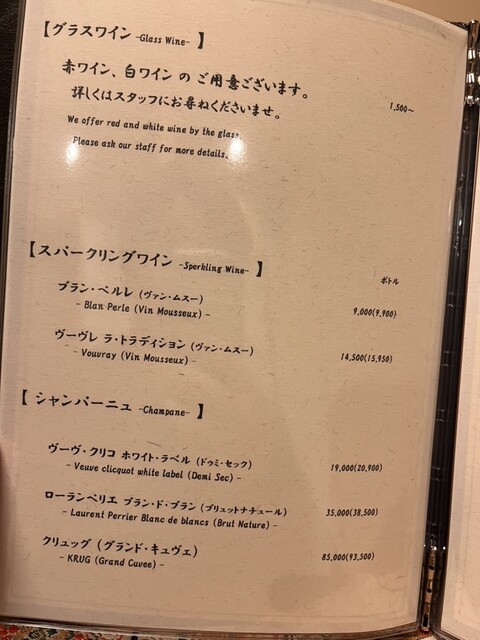 【グラスワイン -Glass Wine- 】
赤ワイン、白ワイン の ご用意ございます。
詳しくはスタッフにお尋ねくださいませ。
1,500～
We offer red and white wine by the glass.
Please ask our staff for more details.
【スパークリングワイン -Sperkling Wine- 】
ボトル
ブラン・ペルレ (ヴァン・ムスー)
- Blan Perle (Vin Mousseux) -
9,000(9,900)
ヴーヴレ ラ・トラディション (ヴァン・ムスー)
- Vouvray (Vin Mousseux) -
14,500(15,950)
【 シャンパーニュ -Champane- 】
ヴーヴ・クリコ ホワイト・ラベル (ドゥミ・セック)
- Veuve clicquot white label (Demi Sec) -
19,000(20,900)
ローランペリエ ブラン・ド・ブラン (ブリュットナチュール)
- Laurent Perrier Blanc de blancs (Brut Nature) -
35,000(38,500)
クリュッグ (グランド・キュヴェ)
- KRUG (Grand Cuvee) -
85,000(93,500)